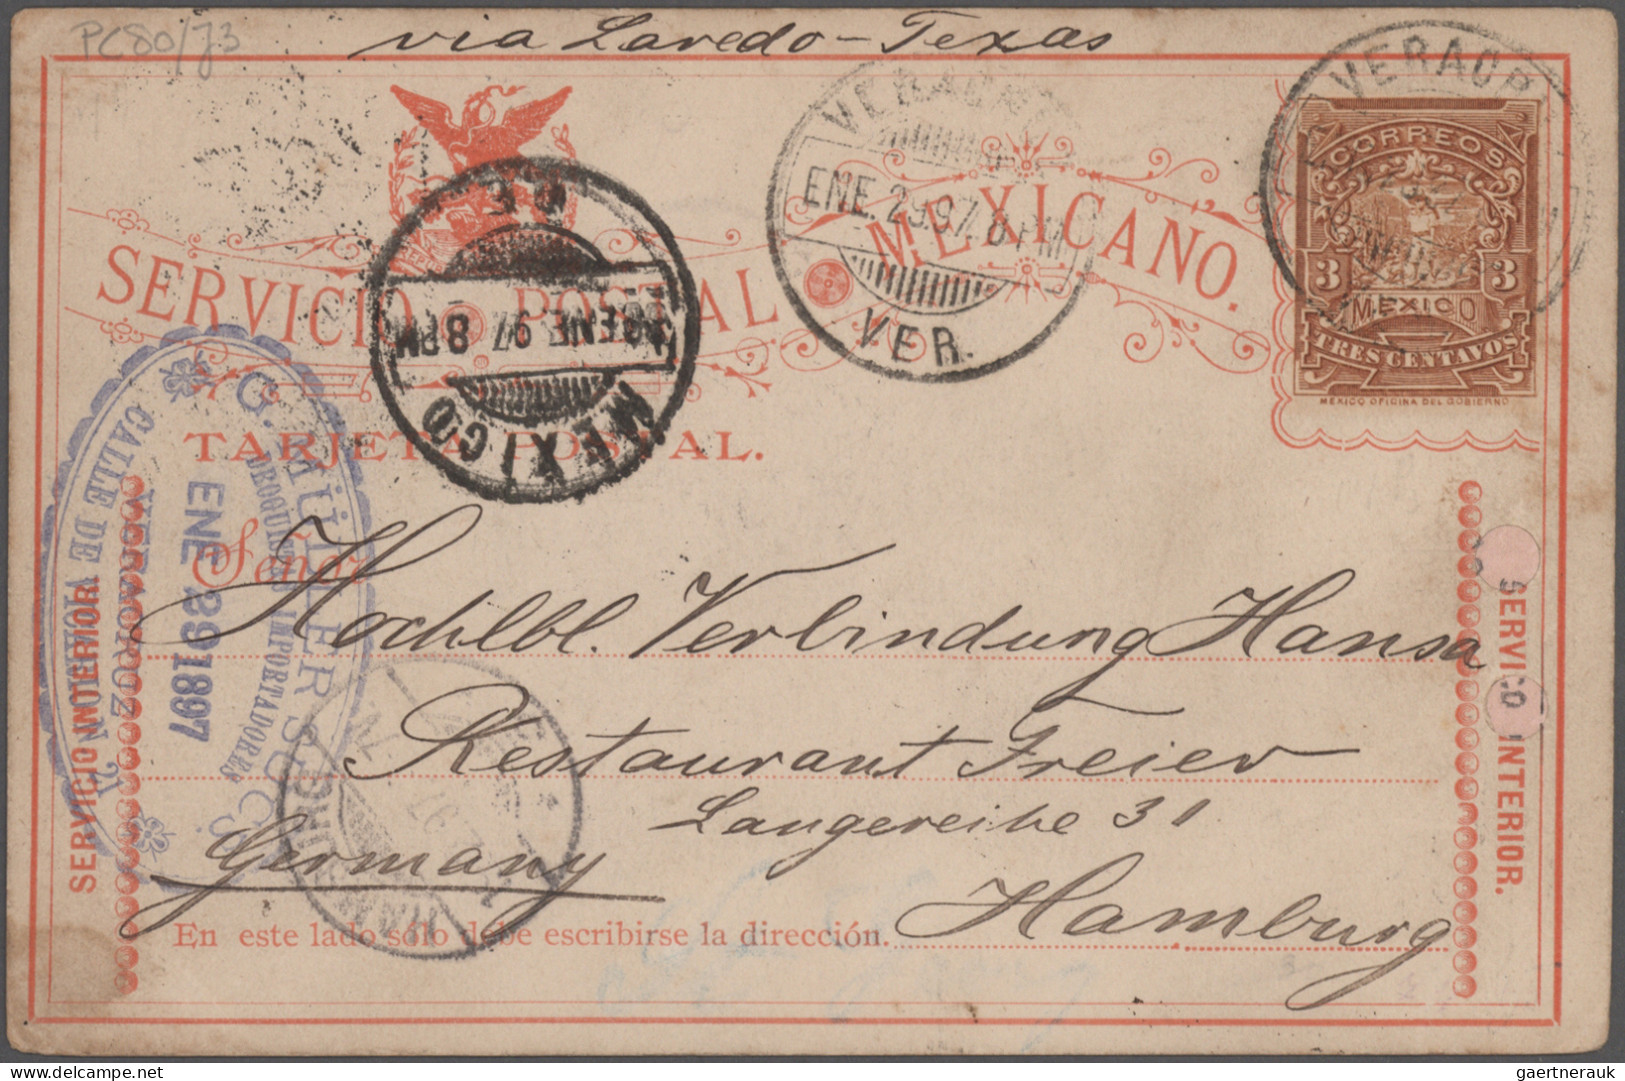 PC80/73
via Laredo-Texas
SERVICIO POSTAL MEXICANO.
TARJETA POSTAL.
Señor
CORREOS
3 3
MEXICO
TRES CENTAVOS
MEXICO OFICINA DEL GOBIERNO
VERACRUZ
ENE. 29.97. 8 PM
VER.
VERACRUZ
MEXICO
ENE 97 8 PM
G. MÜLLER SUCS
DROGUISTAS IMPORTADORES
ENE 29 1897
CALLE DE
VERACRUZ
Hochlbl. Verbindung Hansa
Restaurant Freier
Langereihe 31
Germany
Hamburg
En este lado sólo debe escribirse la dirección.
SERVICIO INTERIOR
SERVICIO INTERIOR.
HAMBURG
gaertnerauk